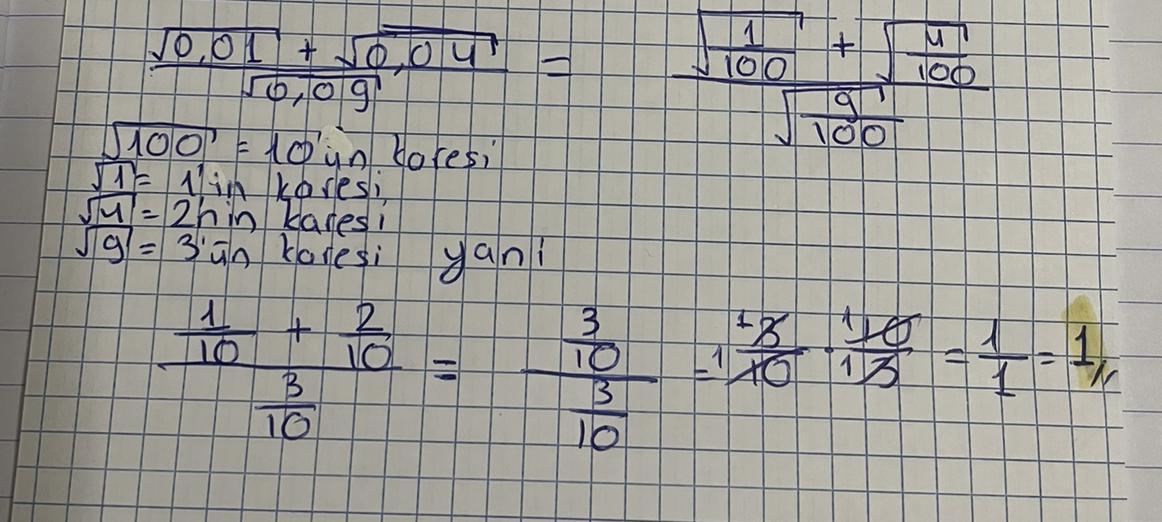 (√0,01 + √0,04) / √0,09 = (√(1/100) + √(4/100)) / √(9/100)
√100 = 10'un karesi
√1 = 1'in karesi
√4 = 2'nin karesi
√9 = 3'ün karesi yani
(1/10 + 2/10) / (3/10) = (3/10) / (3/10) = 3/10 · 10/3 = 1/1 = 1